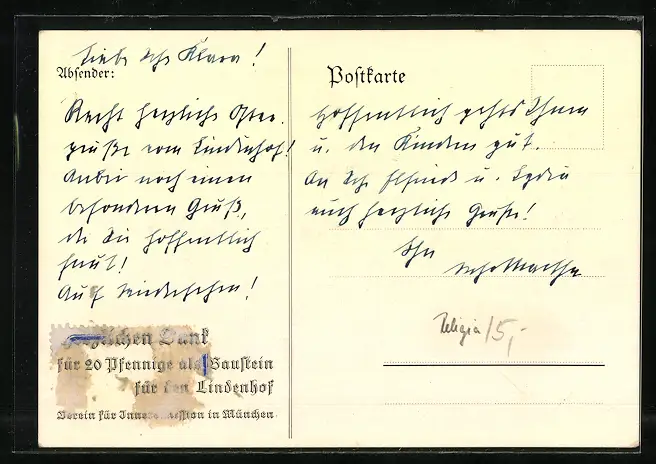 Liebe Schw. Klara!
Absender:
Recht herzliche Oster-
grüße vom Lindenhof!
Anbei noch einen
besonderen Gruß,
der Sie hoffentlich
freut!
Auf Wiedersehen!
Herzlichen Dank
für 20 Pfennige als Baustein
für den Lindenhof
Verein für Innere Mission in München
Postkarte
Hoffentlich geht's Ihnen
u. den Kindern gut.
An Schw. Elfriede u. Lydia
auch herzliche Grüße!
Ihre
Martha
Religia / 5,-